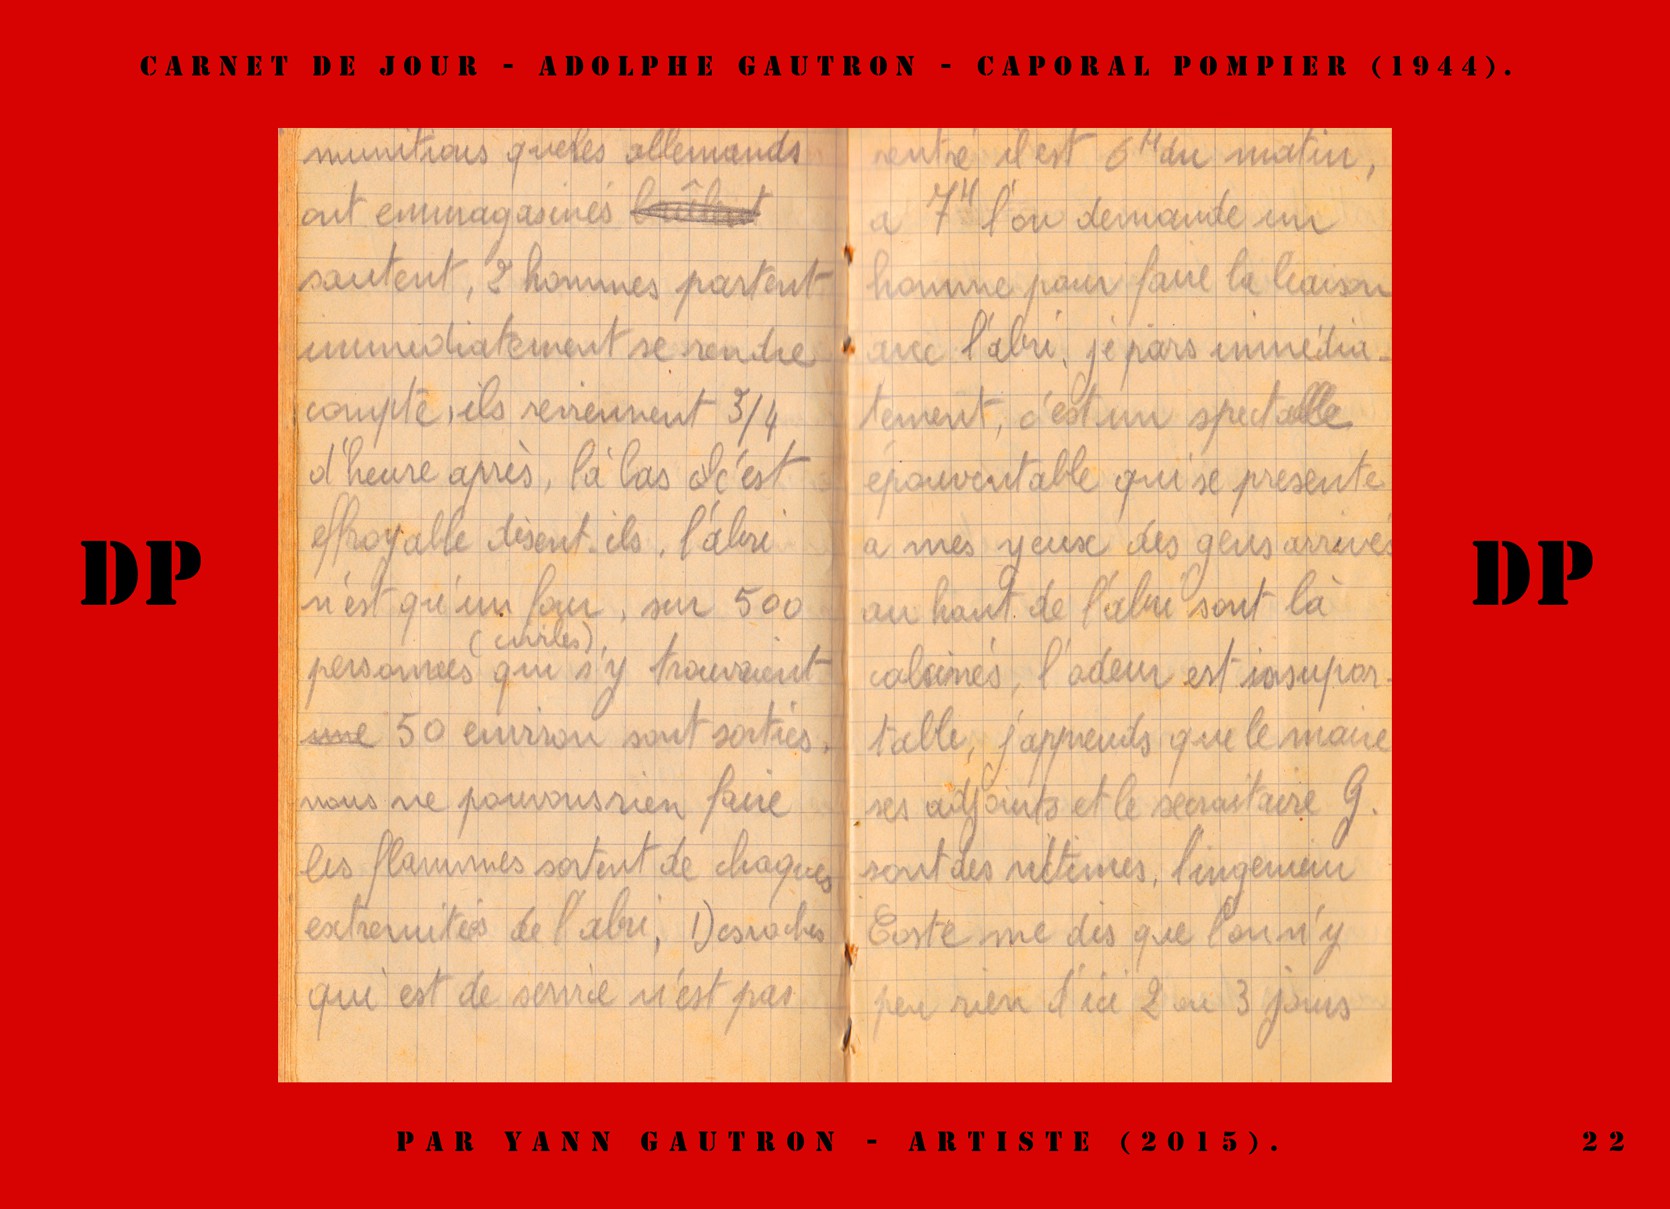 CARNET DE JOUR - ADOLPHE GAUTRON - CAPORAL POMPIER (1944).
munitions que les allemands
ont emmagasinés brûlent
sautent, 2 hommes partent
immediatement se rendre
compte, ils reviennent 3/4
d'heure après, là bas c'est
effroyable disent ils, l'abri
n'est qu'un four, sur 500
(civiles),
personnes qui s'y trouvaient
une 50 environ sont sorties,
nous ne pouvons rien faire
les flammes sortent de chaques
extremités de l'abri, Desroches
qui est de service n'est pas
rentré il est 6H du matin,
a 7H l'on demande un
homme pour faire la liaison
avec l'abri, je pars immédia-
tement, c'est un spectalle
épouventable qui se presente
a mes yeux des gens arrivés
au haut de l'abri sont là
calcinés, l'odeur est insupor-
table, j'apprends que le maire
ses adjoints et le secraitaire G.
sont des victimes, l'ingenieur
Coste me dis que l'on n'y
peu rien d'ici 2 ou 3 jours
DP
DP
PAR YANN GAUTRON - ARTISTE (2015).
22